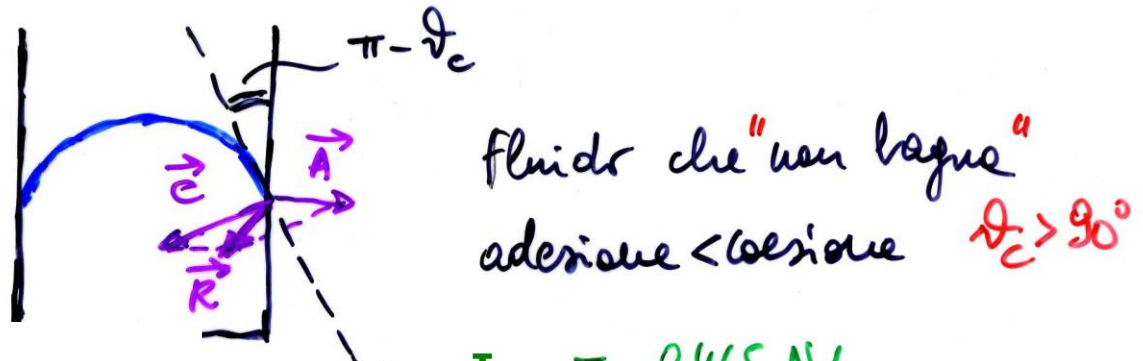 π - ϑc
A
C
R
fluido che "non bagna"
adesione < coesione ϑc > 90°